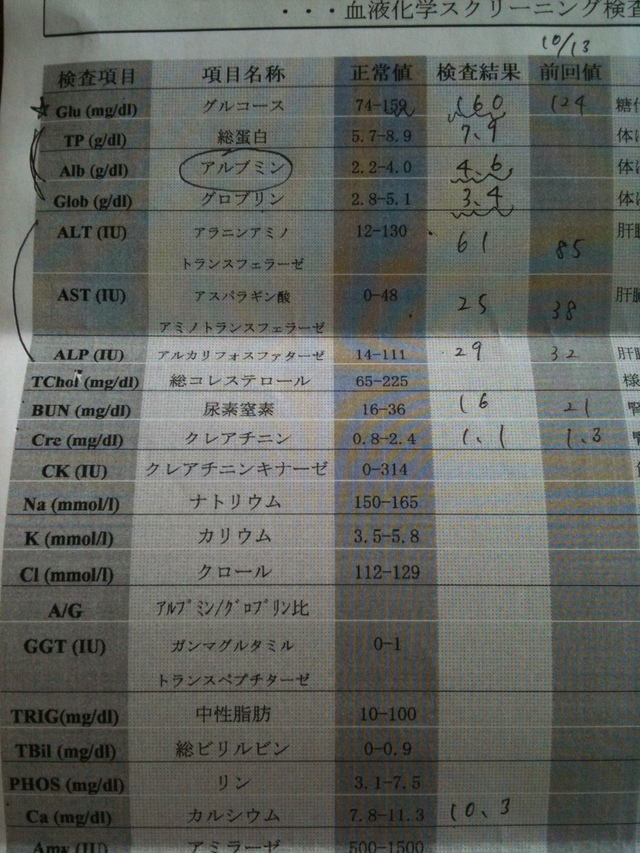 ・・・血液化学スクリーニング検査
10/13
検査項目 項目名称 正常値 検査結果 前回値
☆ Glu (mg/dl) グルコース 74-159 160 124 糖
TP (g/dl) 総蛋白 5.7-8.9 7.9 体
Alb (g/dl) アルブミン 2.2-4.0 4.6 体
Glob (g/dl) グロブリン 2.8-5.1 3.4 体
ALT (IU) アラニンアミノ 12-130 61 85 肝
トランスフェラーゼ
AST (IU) アスパラギン酸 0-48 25 38 肝
アミノトランスフェラーゼ
ALP (IU) アルカリフォスファターゼ 14-111 29 32 肝
TChol (mg/dl) 総コレステロール 65-225 様
BUN (mg/dl) 尿素窒素 16-36 16 21 腎
Cre (mg/dl) クレアチニン 0.8-2.4 1.1 1.3
CK (IU) クレアチニンキナーゼ 0-314
Na (mmol/l) ナトリウム 150-165
K (mmol/l) カリウム 3.5-5.8
Cl (mmol/l) クロール 112-129
A/G ｱﾙﾌﾞﾐﾝ/ｸﾞﾛﾌﾞﾘﾝ比
GGT (IU) ガンマグルタミル 0-1
トランスペプチターゼ
TRIG(mg/dl) 中性脂肪 10-100
TBil (mg/dl) 総ビリルビン 0-0.9
PHOS (mg/dl) リン 3.1-7.5
Ca (mg/dl) カルシウム 7.8-11.3 10.3
Amy (IU) アミラーゼ 500-1500